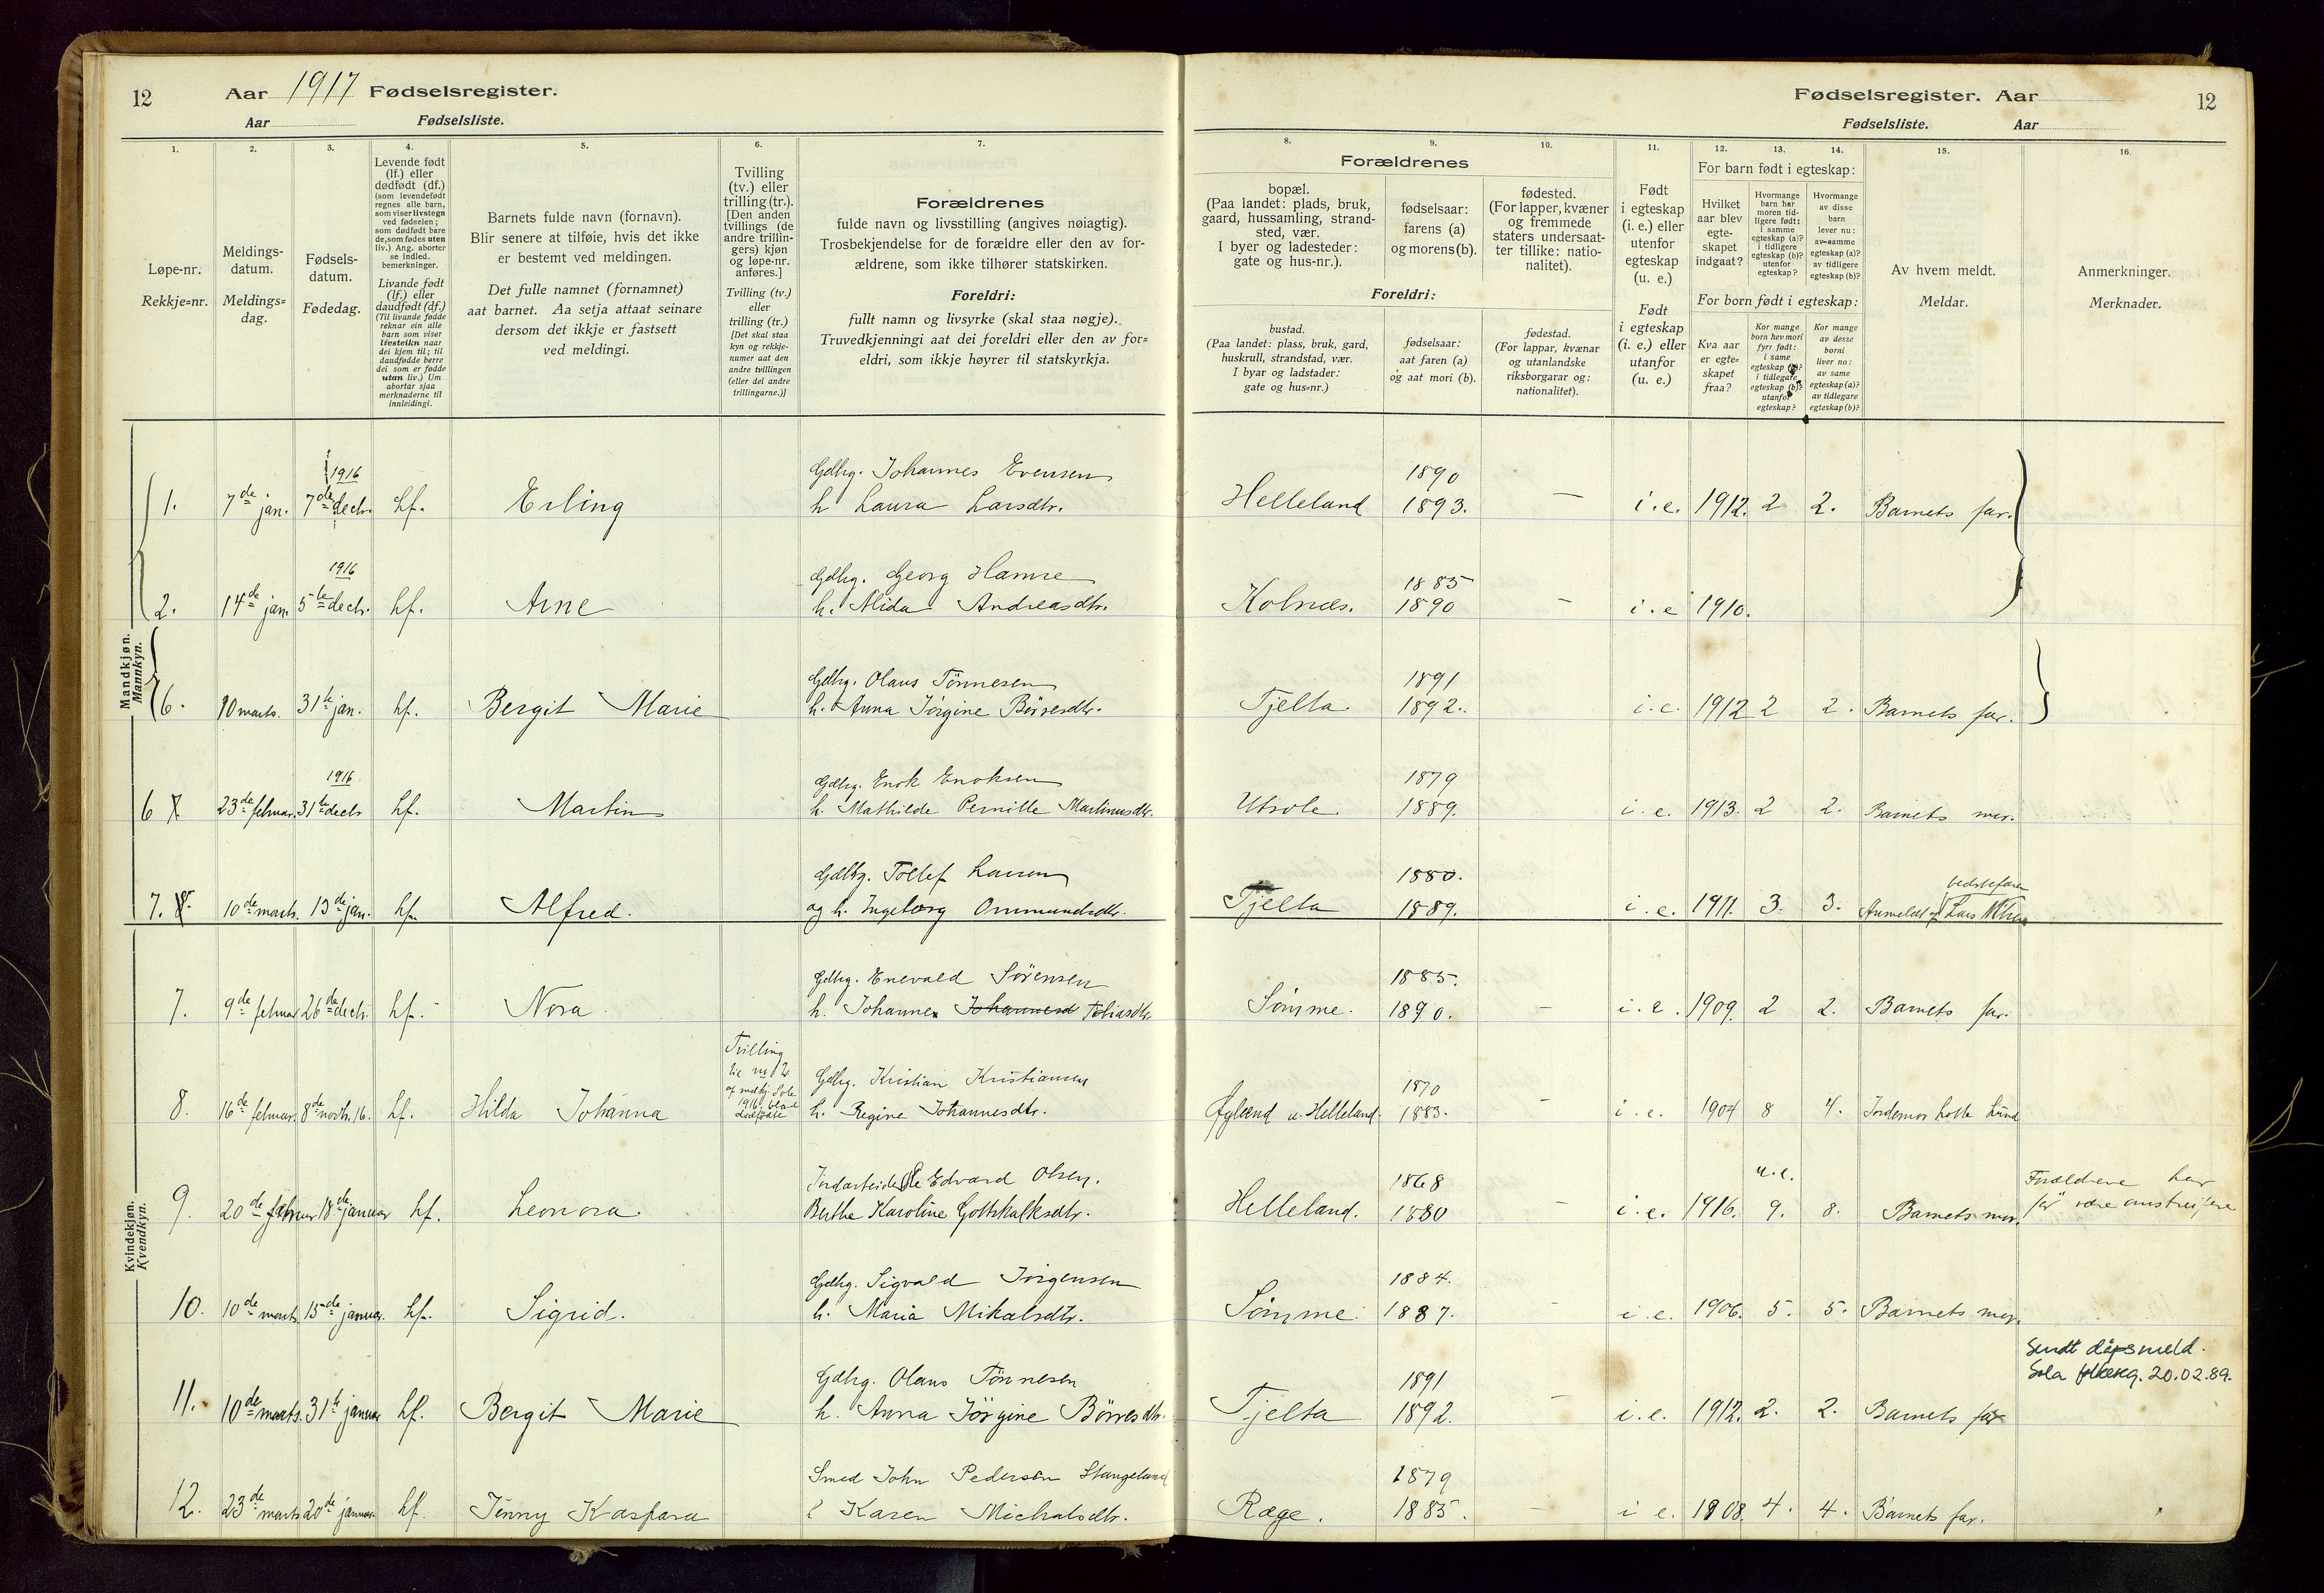 12 Aar 1917 Fødselsregister.
Aar Fødselsliste.
Fødselsregister. Aar 12
Fødselsliste. Aar
1. 2. 3. 4. 5. 6. 7. 8. 9. 10. 11. 12. 13. 14. 15. 16.
Løpe-nr.
Rekkje=nr.
Meldings-
datum.
Meldings=
dag.
Fødsels-
datum.
Fødedag.
Levende født
(lf.) eller
dødfødt (df.)
(som levendefødt
regnes alle barn,
som viser livstegn
ved fødselen;
som dødfødt bare
de, som fødes uten
liv.) Ang. aborter
se indled.
bemerkninger.
Livande født
(lf.) eller
daudfødt (df.)
(Til livande fødde
reknar ein alle
barn som viser
livsteikn naar
dei kjem til; til
daudfødde berre
dei som er fødde
utan liv.) Um
abortar sjaa
merknaderne til
innleidingi.
Barnets fulde navn (fornavn).
Blir senere at tilføie, hvis det ikke
er bestemt ved meldingen.
Det fulle namnet (fornamnet)
aat barnet. Aa setja attaat seinare
dersom det ikkje er fastsett
ved meldingi.
Tvilling
(tv.) eller
trilling (tr.).
[Den anden
tvillings (de
andre trillin-
gers) kjøn
og løpe-nr.
anføres.]
Tvilling (tv.)
eller
trilling (tr.)
[Det skal staa
kyn og rekkje-
numer aat den
andre tvillingen
(eller dei andre
trillingarne.)]
Forældrenes
fulde navn og livsstilling (angives nøiagtig).
Trosbekjendelse for de forældre eller den av for-
ældrene, som ikke tilhører statskirken.
Foreldri:
fullt namn og livsyrke (skal staa nøgje).
Truvedkjenningi aat dei foreldri eller den av for=
eldri, som ikkje høyrer til statskyrkja.
Forældrenes
bopæl.
(Paa landet: plads, bruk,
gaard, hussamling, strand-
sted, vær.
I byer og ladesteder:
gate og hus-nr.).
fødselsaar:
farens (a)
og morens (b).
fødested.
(For lapper, kvæner
og fremmede
staters undersaat-
ter tillike: natio-
nalitet).
Foreldri:
bustad.
(Paa landet: plass, bruk, gard,
huskrull, strandstad, vær.
I byar og ladstader:
gate og hus-nr.)
fødselsaar:
aat faren (a)
og aat mori (b).
fødestad.
(For lappar, kvænar
og utanlandske
riksborgarar og:
nationalitet).
Født
i egteskap
(i. e.) eller
utenfor
egteskap
(u. e.)
Født
i egteskap
(i. e.) eller
utanfor
(u. e.)
For barn født i egteskap:
Hvilket
aar blev
egte-
skapet
indgaat?
Hvormange
barn har
moren tid-
ligere født:
i samme
egteskap (a)?
i tidligere
egteskap (b)?
utenfor
egteskap?
Hvormange
av disse
barn
lever nu:
av samme
egteskap (a)?
av tidligere
egteskap (b)?
For born født i egteskap:
Kva aar
er egte=
skapet
fraa?
Kor mange
born hev mori
fyrr født:
i same
egteskap (a)?
i tidlegare
egteskap (b)?
utanfor
egteskap?
Kor mange
av desse
borni
liver no:
av same
egteskap (a)?
av tidlegare
egteskap (b)?
Av hvem meldt.
Meldar.
Anmerkninger.
Merknader.
Mandkjøn.
Mannkyn.
1916 Gdbg. Johannes Evensen 1890
1. 7de jan. 7de decbr. Lf. Erling h Laura Larsdtr. Helleland 1893. — i. e. 1912. 2 2. Barnets far.
1916 Gdbg. Georg Hamre 1885
2. 14de jan. 5te decbr. Lf. Arne h. Alida Andreasdtr. Kolnes. 1890 — i. e 1910.
Gdbg. Olaus Tönnesen 1891
6. 10 marts. 31te jan. Lf. Bergit Marie h. Anna Jörgine Börresdtr. Tjelta. 1892. i. e. 1912 2 2. Barnets far.
1916 Gdbg. Enok Enoksen 1879
6 23de februar. 31te decbr Lf. Martin h. Mathilde Pernille Martinusdtr. Utsole 1889. i. e. 1913. 2 2. Barnets mor.
Gdbg. Tollef Larsen 1880. bedstefaren
7. 8. 10de marts. 13de jan. Lf. Alfred. og h. Ingeborg Ommundsdtr. Tjelta 1889. i. e. 1911. 3. 3. Anmeldt af Lars
Kvindekjøn.
Kvendkyn.
Gdbg. Enevald Sörensen 1885.
7. 9de februar 26de decbr. Lf. Nora h. Johanne Tobiasdtr. Sömme. 1890. — i. e. 1909. 2 2. Barnets far.
Tvilling
Gdbg. Kristian Kristiansen 1870
8. 16de februar. 8de novbr. 16. Lf. Hilda Johanna h. Regine Johannesdtr. Øglænd u. Helleland. 1883. — i. e. 1904 8 4. Jordemor Lotte Lund
Jordarbeider Edvard Olsen. 1868 u. e. Forældrene har
9. 20de februar 18de januar Lf. Leonora. Berthe Karoline Gottskalksdtr. Helleland. 1880 — i. e. 1916. 9. 8. Barnets mor.
Gdbg. Sigvald Jörgensen 1884.
10. 10de marts. 15de januar. Lf. Sigrid. h. Maria Mikalsdtr. Sömme. 1887. i. e. 1906. 5. 5. Barnets mor.
Sendt dåpsmeld.
Sola folkereg. 20.02.89.
Gdbg. Olaus Tönnesen 1891
11. 10de marts. 31te januar Lf. Bergit Marie h. Anna Jörgine Börresdtr. Tjelta 1892. — i. e. 1912. 2. 2. Barnets far
Smed John Pedersen Stangeland 1879
12. 23de marts 20de januar. Lf. Jenny Kaspara Karen Michalsdtr. Ræge. 1885. — i e. 1908. 4. 4. Barnets far.